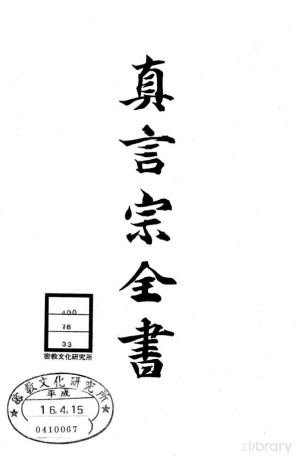 真言宗全書
400
76
33
密教文化研究所
密教文化研究所
平成
16.4.15
0410067
zlibrary